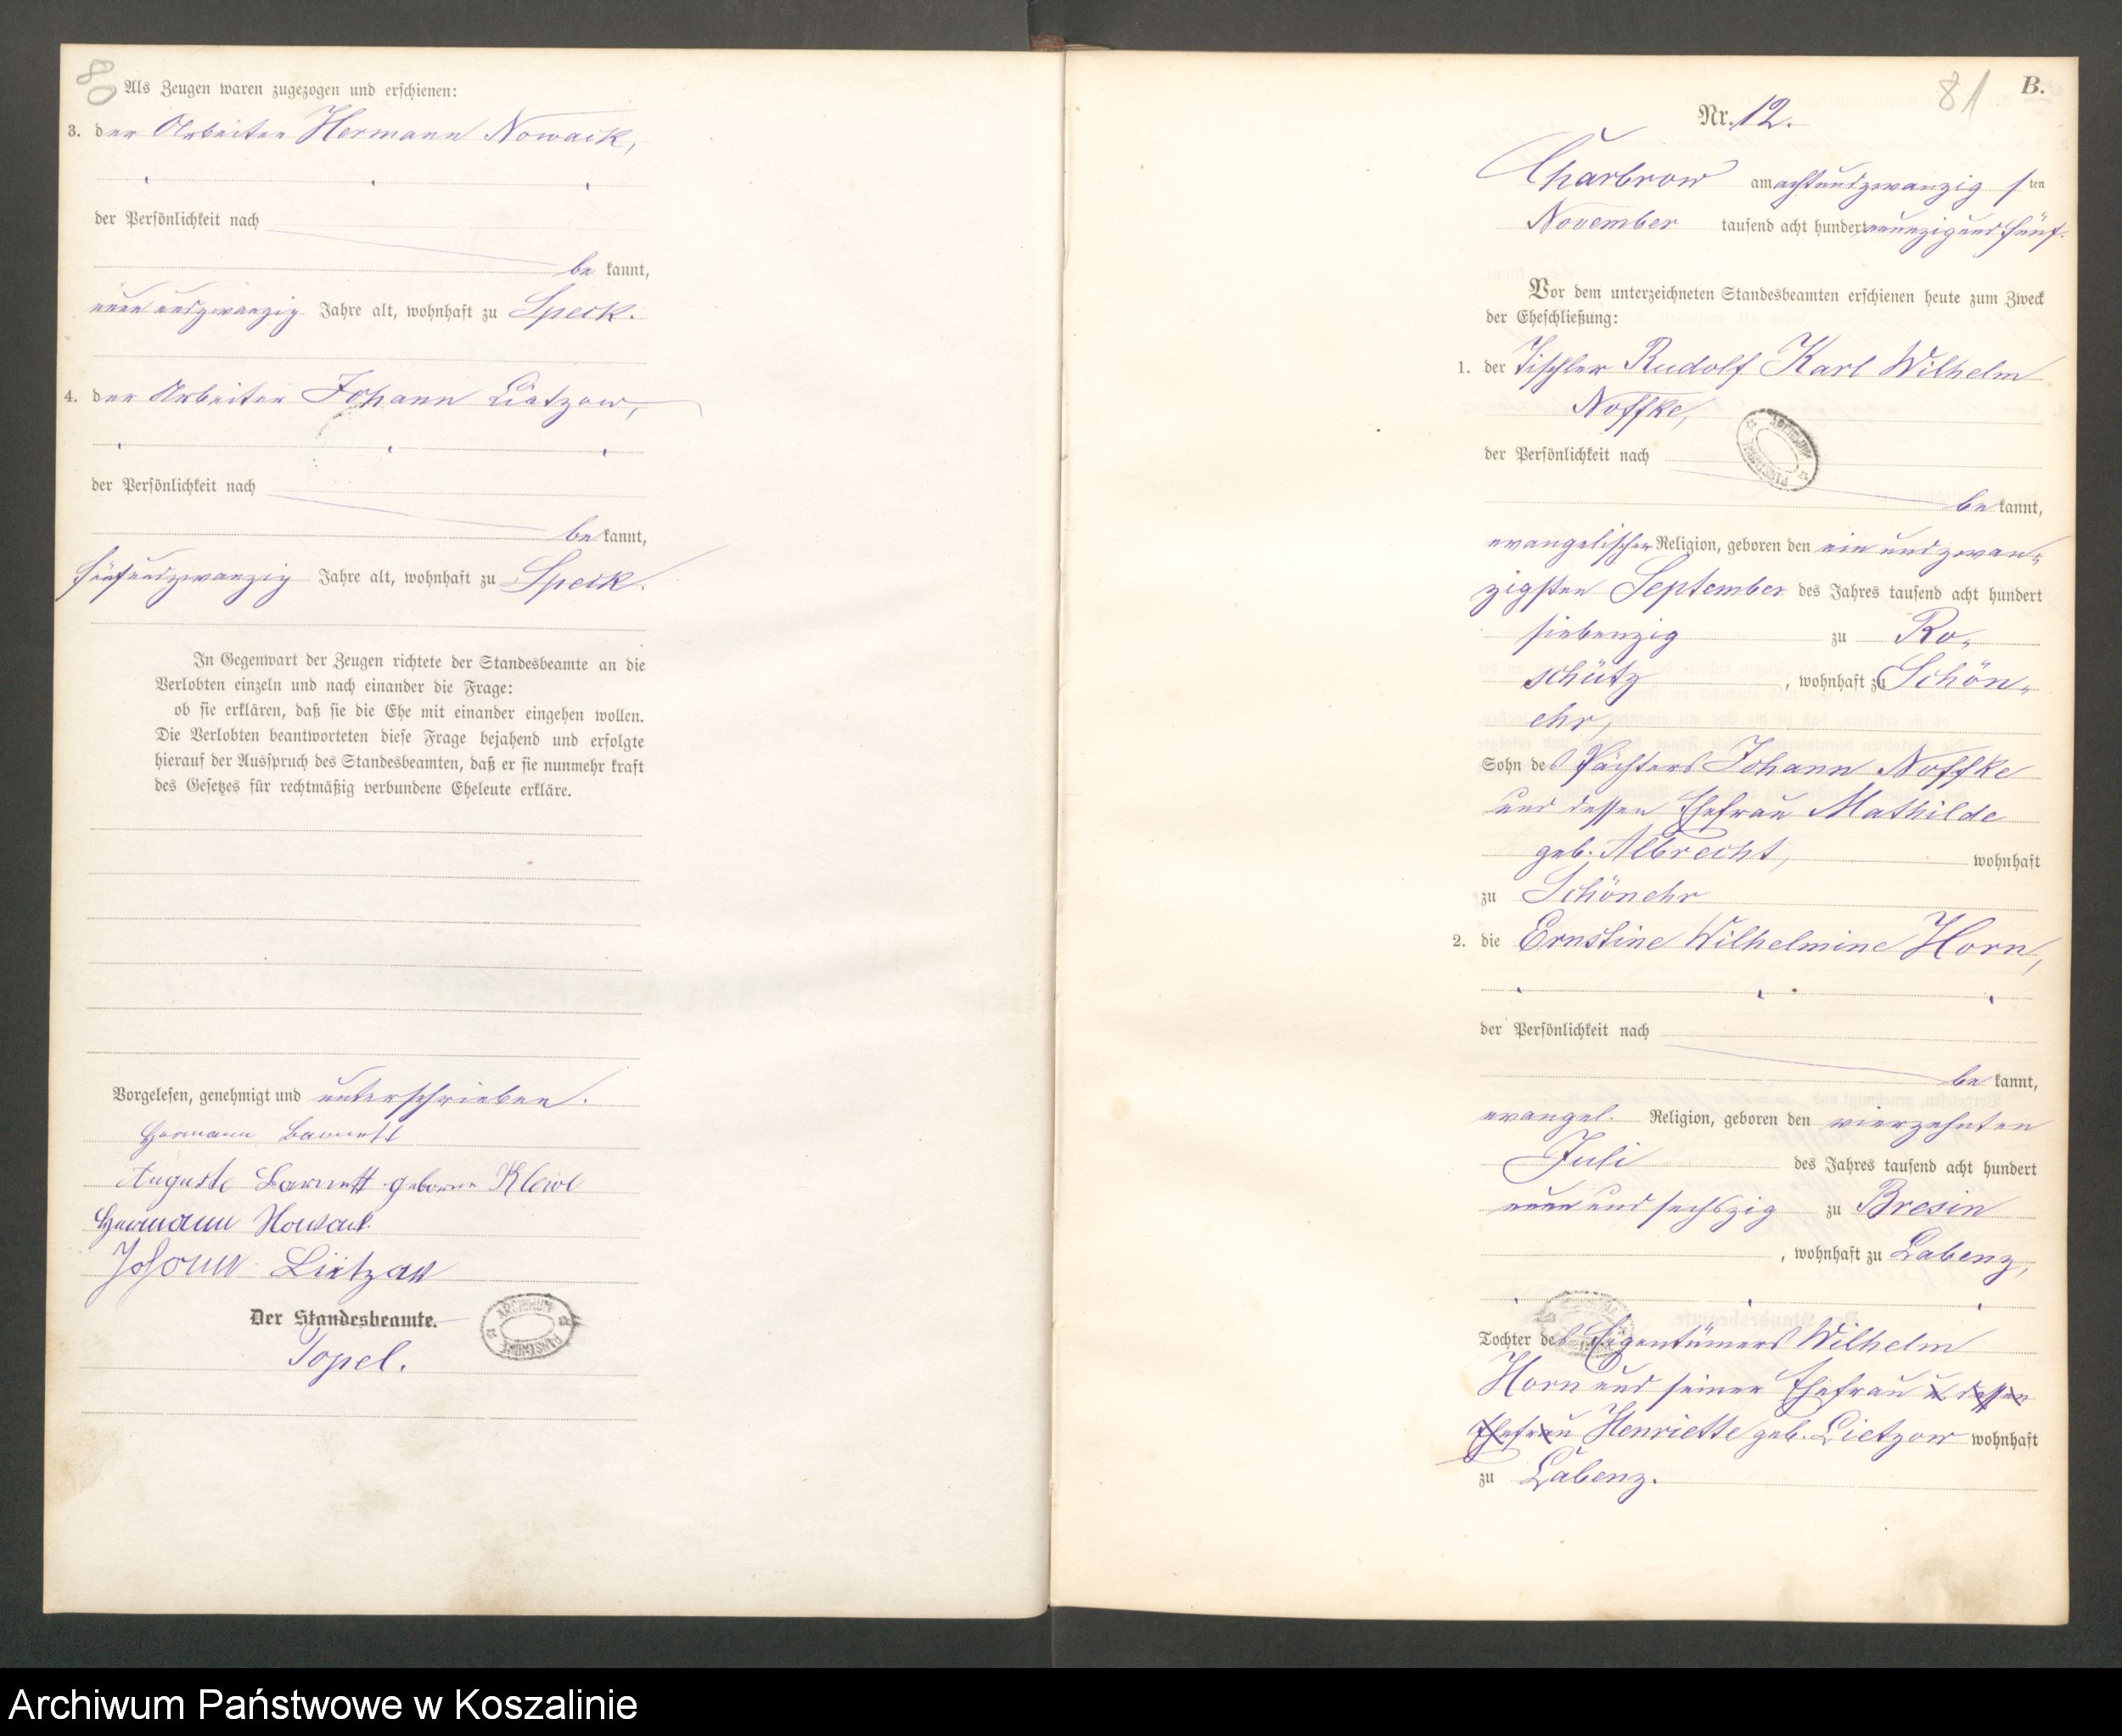 80
Als Zeugen waren zugezogen und erschienen:
3. der Arbeiter Hermann Nowack,
der Persönlichkeit nach
be kannt,
neun undzwanzig Jahre alt, wohnhaft zu Speck.
4. der Arbeiter Johann Lietzow,
der Persönlichkeit nach
be kannt,
fünfundzwanzig Jahre alt, wohnhaft zu Speck.
In Gegenwart der Zeugen richtete der Standesbeamte an die
Verlobten einzeln und nach einander die Frage:
ob sie erklären, daß sie die Ehe mit einander eingehen wollen.
Die Verlobten beantworteten diese Frage bejahend und erfolgte
hierauf der Ausspruch des Standesbeamten, daß er sie nunmehr kraft
des Gesetzes für rechtmäßig verbundene Eheleute erkläre.
Vorgelesen, genehmigt und unterschrieben.
Hermann Barnett
Auguste Barnett geborne
Hermann Nowack
Johann Lietzau
Der Standesbeamte.
Topel.
ARCHIWUM PAŃSTWOWE
81
B.
Nr. 12.
Charbrow am achtundzwanzig sten
November tausend acht hundert neunzigund fünf.
Vor dem unterzeichneten Standesbeamten erschienen heute zum Zweck
der Eheschließung:
1. der Tischler Rudolf Karl Wilhelm
Noffke,
ARCHIWUM PAŃSTWOWE
der Persönlichkeit nach
be kannt,
evangelischer Religion, geboren den ein und zwan-
zigsten September des Jahres tausend acht hundert
siebenzig zu Ro-
schütz , wohnhaft zu Schön-
ehr,
Sohn des Pächters Johann Noffke
und dessen Ehefrau Mathilde
geb. Albrecht, wohnhaft
zu Schönehr
2. die Ernstine Wilhelmine Horn,
der Persönlichkeit nach
be kannt,
evangel. Religion, geboren den vierzehnten
Juli des Jahres tausend acht hundert
neun und sechszig zu Bresin
, wohnhaft zu Labenz,
Tochter des Eigentümers Wilhelm
Horn und seiner Ehefrau u dessen
Ehefrau Henriette geb. Lietzow wohnhaft
zu Labenz.
Archiwum Państwowe w Koszalinie